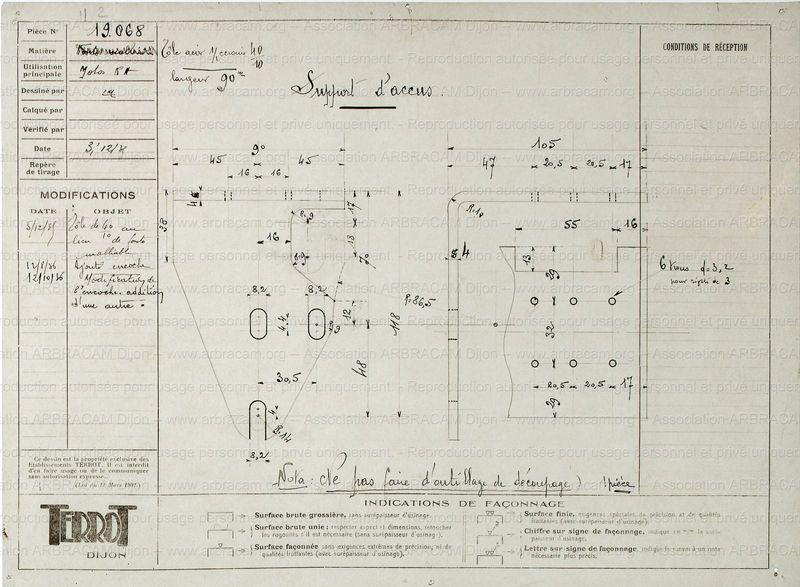 Pièce N° 19.068
Matière
Tôle acier
40/10
largeur 90
Utilisation principale
Motos RA
Dessiné par
Calqué par
Vérifié par
Date
Repère de tirage
Support d'accus.
CONDITIONS DE RÉCEPTION
MODIFICATIONS
DATE OBJET
Tôle de 40 au
lieu de fonte
malléable
Ajouté encoche
12/10/36 Modification de
l'encoche. addition
d'une autre
90
45 45
16 16
38
17
16
13
70
8,2 8,2
4.4
12
118
48
30,5
8,2
R.14
R.86,5
105
47 20,5 20,5 17
R.10
55 16
4
13
29
32
20,5 20,5 17
29
6 trous d=3,2
pour rivets de 3
Nota: Ne pas faire d'outillage de découpage) 1 pièce
Ce dessin est la propriété exclusive des
Etablissements TERROT. Il est interdit
d'en faire usage ou de le communiquer
sans autorisation expresse.
(Loi du 11 Mars 1902.)
TERROT
DIJON
INDICATIONS DE FAÇONNAGE
Surface brute grossière, sans surépaisseur d'usinage.
Surface brute unie; respecter aspect et dimensions, retoucher
les rugosités s'il est nécessaire (sans surépaisseur d'usinage).
Surface façonnée sans exigences extrêmes de précision, ni de
qualités frottantes (avec surépaisseur d'usinage).
Surface finie, exigences spéciales de précision et de qualités
frottantes (avec surépaisseur d'usinage).
Chiffre sur signe de façonnage, indique en m/m la surépaisseur d'usinage.
Lettre sur signe de façonnage, indique le renvoi à une note
nécessaire plus précis.
www.arbracam.org – Association ARBRACAM Dijon – Reproduction autorisée pour usage personnel et privé uniquement.